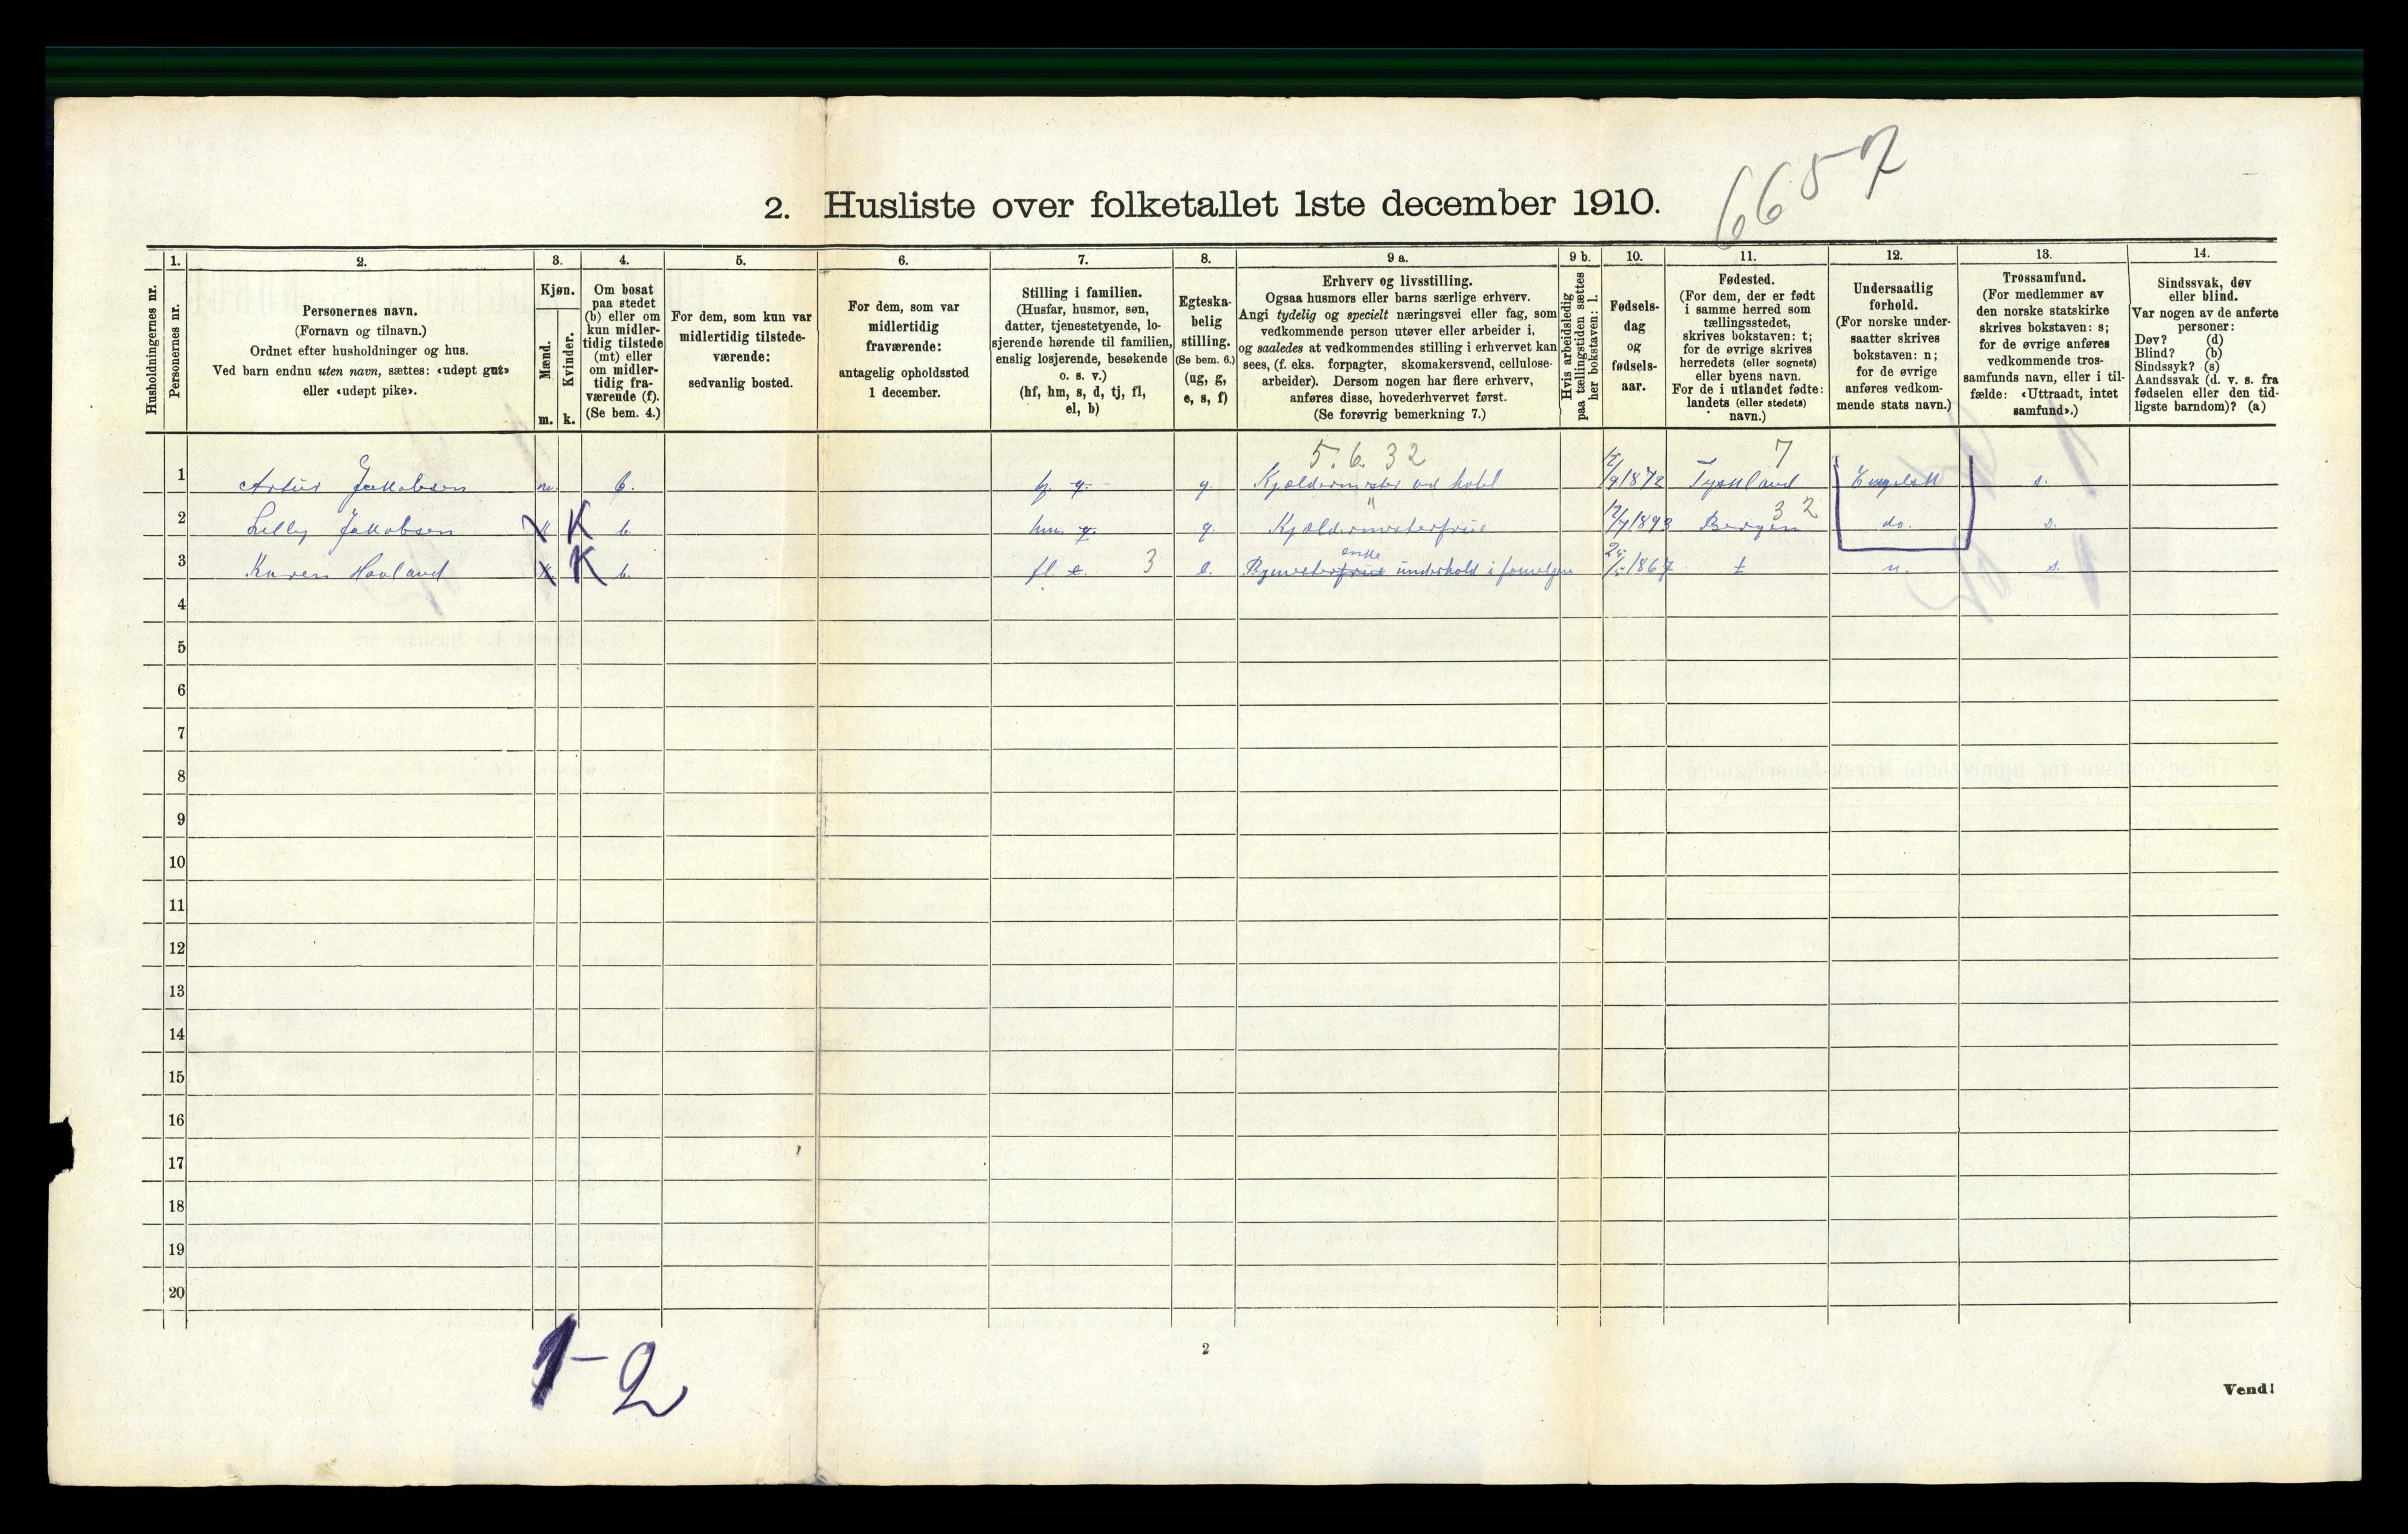 6657
2. Husliste over folketallet 1ste december 1910.
Husholdningernes nr.
1.
Personernes nr.
2.
Personernes navn.
(Fornavn og tilnavn.)
Ordnet efter husholdninger og hus.
Ved barn endnu uten navn, sættes: «udøpt gut»
eller «udøpt pike».
3.
Kjøn.
Mænd.
m.
Kvinder.
k.
4.
Om bosat
paa stedet
(b) eller om
kun midler-
tidig tilstede
(mt) eller
om midler-
tidig fra-
værende (f).
(Se bem. 4.)
5.
For dem, som kun var
midlertidig tilstede-
værende:
sedvanlig bosted.
6.
For dem, som var
midlertidig
fraværende:
antagelig opholdssted
1 december.
7.
Stilling i familien.
(Husfar, husmor, søn,
datter, tjenestetyende, lo-
sjerende hørende til familien,
enslig losjerende, besøkende
o. s. v.)
(hf, hm, s, d, tj, fl,
el, b)
8.
Egteska-
belig
stilling.
(Se bem. 6.)
(ug, g,
e, s, f)
9 a.
Erhverv og livsstilling.
Ogsaa husmors eller barns særlige erhverv.
Angi tydelig og specielt næringsvei eller fag, som
vedkommende person utøver eller arbeider i,
og saaledes at vedkommendes stilling i erhvervet kan
sees, (f. eks. forpagter, skomakersvend, cellulose-
arbeider). Dersom nogen har flere erhverv,
anføres disse, hovederhvervet først.
(Se forøvrig bemerkning 7.)
9 b.
Hvis arbeidsledig
paa tællingstiden sættes
her bokstaven: l.
10.
Fødsels-
dag
og
fødsels-
aar.
11.
Fødested.
(For dem, der er født
i samme herred som
tællingsstedet,
skrives bokstaven: t;
for de øvrige skrives
herredets (eller sognets)
eller byens navn.
For de i utlandet fødte:
landets (eller stedets)
navn.)
12.
Undersaatlig
forhold.
(For norske under-
saatter skrives
bokstaven: n;
for de øvrige
anføres vedkom-
mende stats navn.)
13.
Trossamfund.
(For medlemmer av
den norske statskirke
skrives bokstaven: s;
for de øvrige anføres
vedkommende tros-
samfunds navn, eller i til-
fælde: «Uttraadt, intet
samfund».)
14.
Sindssvak, døv
eller blind.
Var nogen av de anførte
personer:
Døv? (d)
Blind? (b)
Sindssyk? (s)
Aandssvak (d. v. s. fra
fødselen eller den tid-
ligste barndom)? (a)
5.6.32 7
1 Artur Jakobsen m. b. g. g. Kjældermester ved hotel 1872 Tyskland Engelsk s.
" 32
2 Lelly Jakobsen K b. hm. g. g. Kjældermesterfrue 1893 Bergen do. s.
enke
3 Karen Havland K b. fl. e. 3 e. underhold i 1867 t n. s.
4
5
6
7
8
9
10
11
12
13
14
15
16
17
18
19
20
1-2
2
Vend!